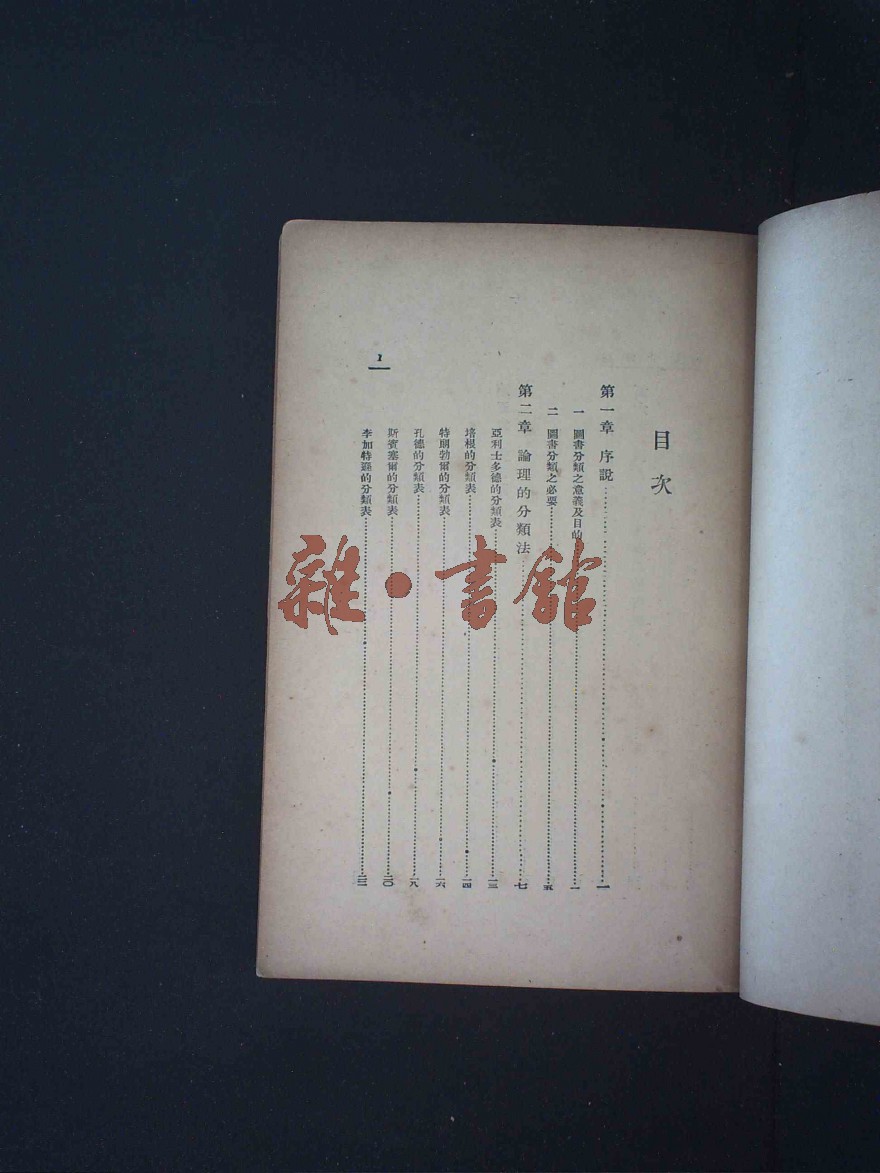 目次
第一章 序說……一
一 圖書分類之意義及目的……一
二 圖書分類之必要……五
第二章 論理的分類法……七
亞利士多德的分類表……一三
培根的分類表……一四
特朗勃爾的分類表……一六
孔德的分類表……一八
斯賓塞爾的分類表……二〇
李加特遜的分類表
1
雜·書館